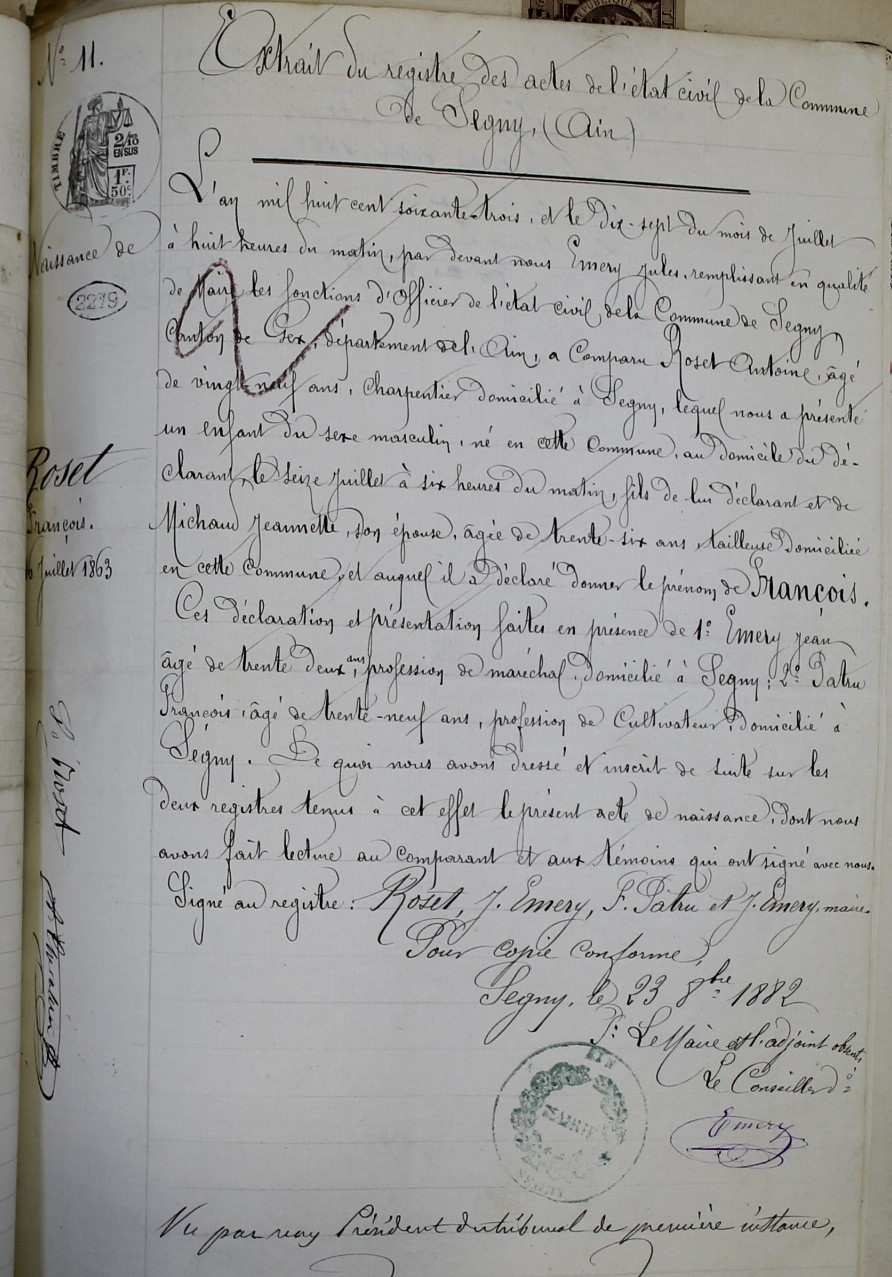 RÉPUBLIQUE
N.º 11.
Extrait du registre des actes de l'état civil de la Commune
de Segny, (Ain)
TIMBRE
2/10
EN SUS
1F.
50c.
Naissance de
2219
Roset
François.
Juillet 1863
L'an mil huit cent soixante-trois, et le dix-sept du mois de Juillet
à huit heures du matin, par devant nous Emery Jules, remplissant en qualité
de Maire les fonctions d'Officier de l'état civil de la Commune de Segny,
Canton de Gex, département de l'Ain, a Comparu Roset Antoine, âgé
de vingt neuf ans, Charpentier domicilié à Segny, lequel nous a présenté
un enfant du sexe masculin, né en cette Commune, au domicile du dé-
clarant, le seize Juillet à six heures du matin, fils de lui déclarant et de
Michaud Jeannette, son épouse, âgée de trente-six ans, tailleuse domiciliée
en cette Commune, et auquel il a déclaré donner le prénom de François.
Ces déclaration et présentation faites en présence de 1º Emery Jean
âgé de trente deux ans, profession de maréchal, domicilié à Segny; 2º Patru
François, âgé de trente-neuf ans, profession de Cultivateur, domicilié à
Segny. De quoi nous avons dressé et inscrit de suite sur les
deux registres tenus à cet effet le présent acte de naissance, dont nous
avons fait lecture au comparant et aux témoins qui ont signé avec nous.
Signé au registre: Roset, J. Emery, F. Patru et J. Emery, maire.
Pour copie conforme,
Segny, le 23 8bre 1882
Pr Le Maire et l'adjoint absents,
Le Conseiller dº
Emery
AIN
MAIRIE
SEGNY
Vu par nous Président du tribunal de première instance,
Roset